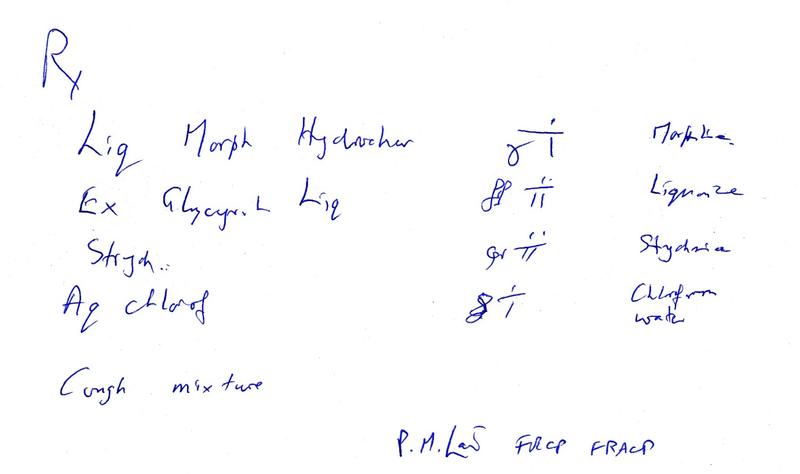 Rx
Liq Morph Hydrochlor gr i Morphine
Ex Glycyrrh Liq ʒ ii Liquorice
Strych.. gr ii Strychnine
Aq chlorof ʒ i Chloroform
water
Cough mixture
P.M. FRCP FRACP